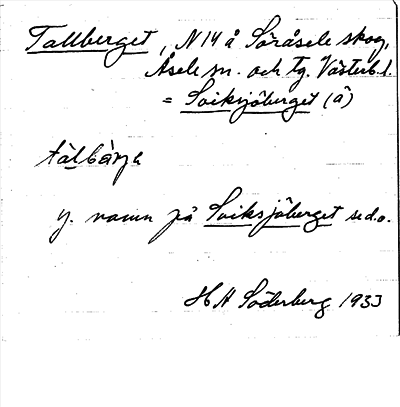 Tallberget, N 14 å Söråsele skog,
Åsele sn. och tg. Västerb. l.
= Sviksjöberget (å)
tàlbǽrjɐ
y. namn på Sviksjöberget se d.o.
H H Söderberg 1933